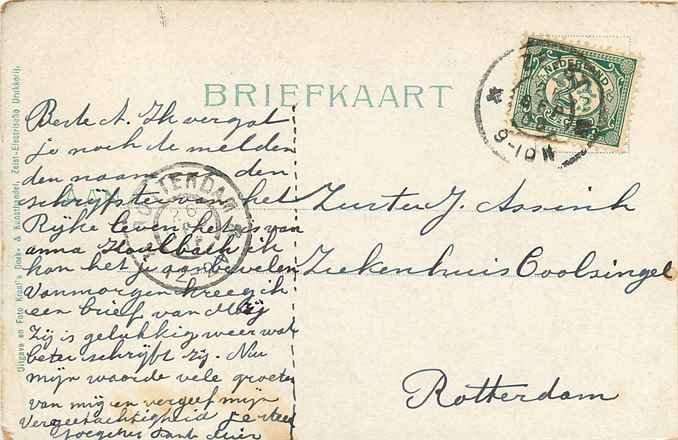 BRIEFKAART
NEDERLAND
2½
CENT
9-10 N
ROTTERDAM
AAN
Beste A. Ik vergat
je noch te melden
den naam van den
schrijfster van het
Rijke leven, het is van
anna ik
kan het je aanbevelen
Vanmorgen kreeg ik
een brief van Mej
Zij is gelukkig weer wat
beter schrijft zij. Nu
mijn waarde vele groeten
van mij en vergeef mijn
Vergeetachtigheid je steeds
Zuster J. Assink
Ziekenhuis Coolsingel
Rotterdam
Uitgave en Foto Kraal's Boek- & Kunsthandel, Zeist-Electrische Drukkerij.